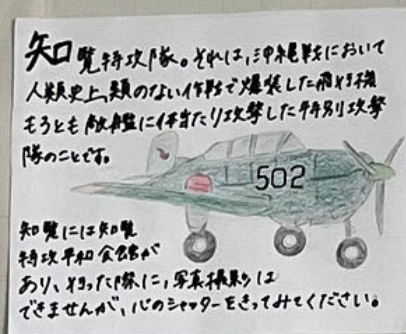 知覧特攻隊。それは、沖縄戦において
人類史上、類のない作戦で爆装した飛行機
もろとも敵艦に体当たり攻撃した特別攻撃
隊のことです。
502
知覧には知覧
特攻平和会館が
あり、行った際に、写真撮影は
できませんが、心のシャッターをきってみてください。